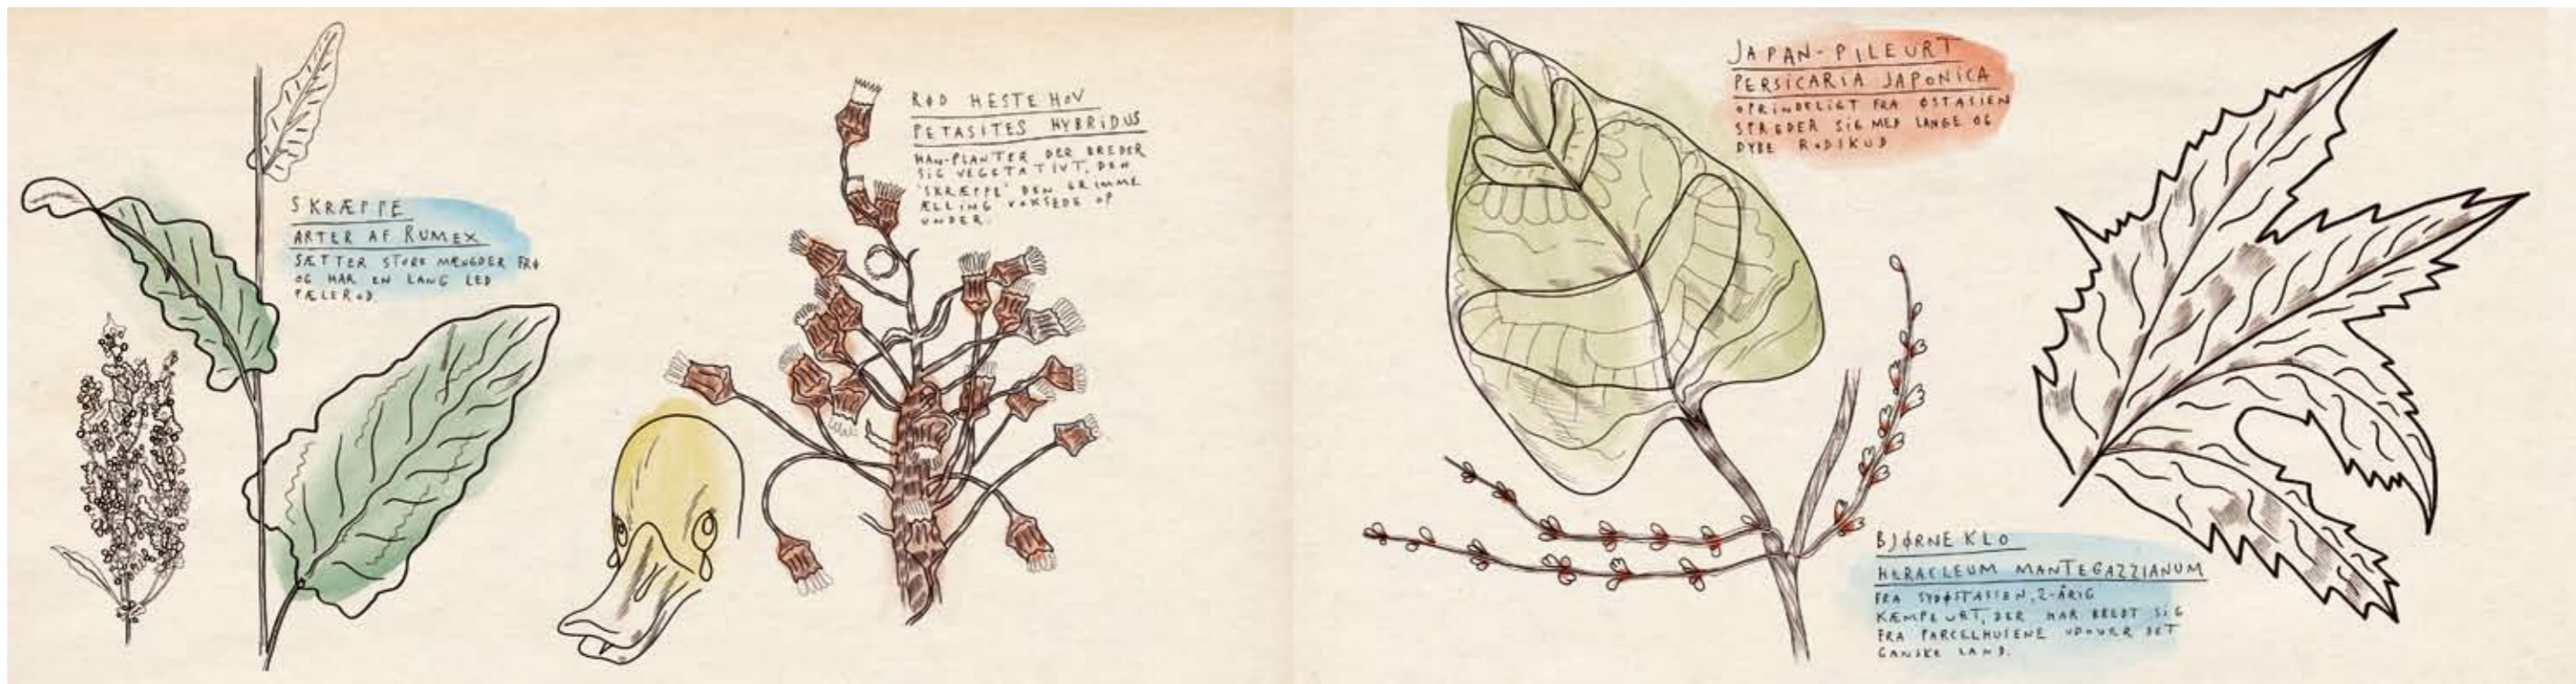 SKRÆPPE
ARTER AF RUMEX
SÆTTER STORE MÆNGDER FRØ
OG HAR EN LANG LED
PÆLEROD.
RØD HESTEHOV
PETASITES HYBRIDUS
HAN-PLANTER DER BREDER
SIG VEGETATIVT, DEN
'SKRÆPPE' DEN GRIMME
ÆLLING VOKSEDE OP
UNDER.
JAPAN-PILEURT
PERSICARIA JAPONICA
OPRINDELIGT FRA ØSTASIEN
SPREDER SIG MED LANGE OG
DYBE RODSKUD
BJØRNEKLO
HERACLEUM MANTEGAZZIANUM
FRA SYDØSTASIEN, 2-ÅRIG
KÆMPEURT, DER HAR BREDT SIG
FRA PARCELHUSENE UDOVER DET
GANSKE LAND.